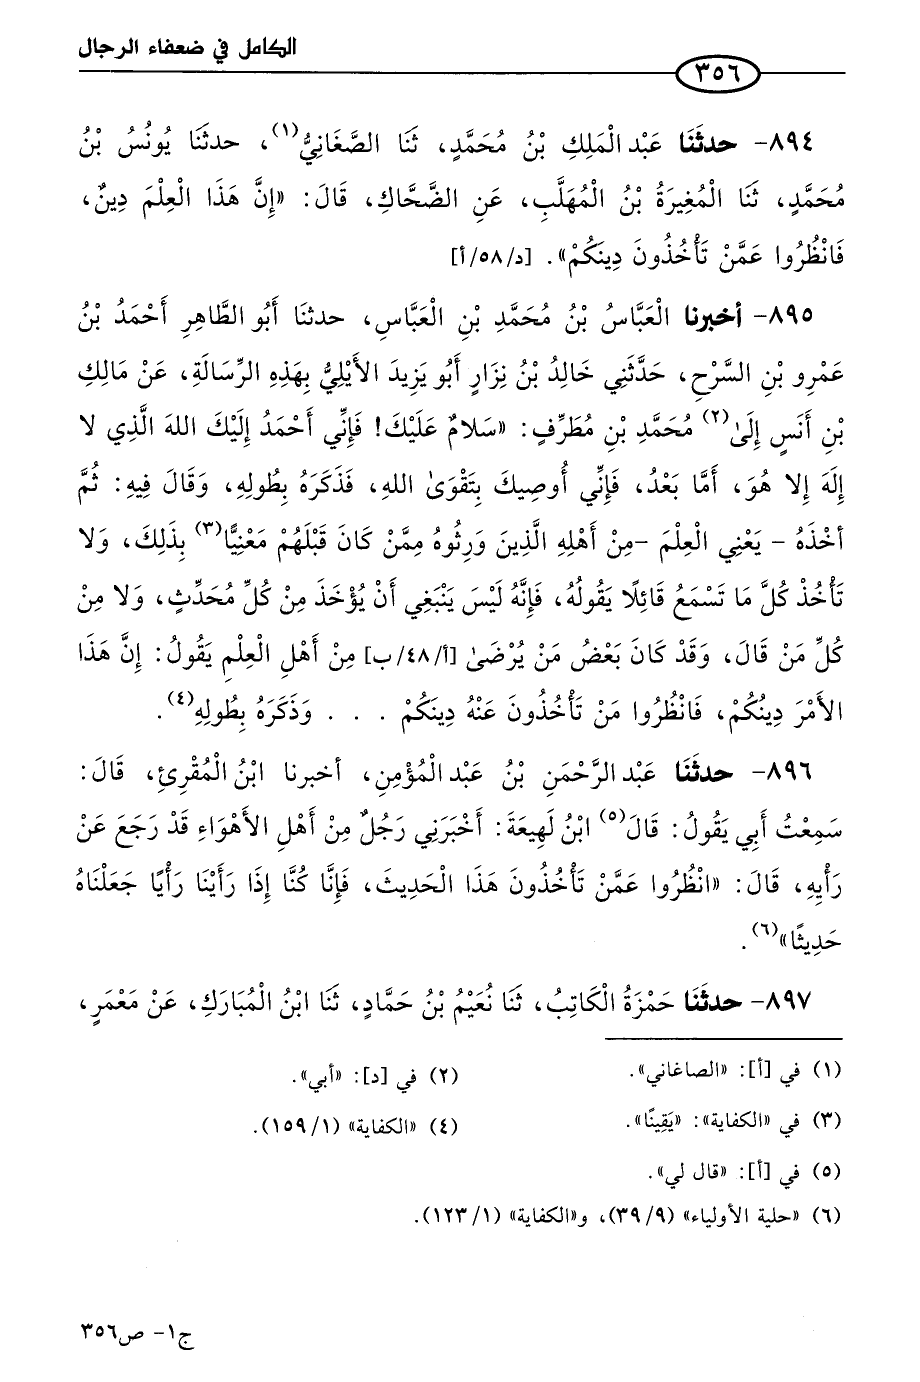 الكامل في ضعفاء الرجال
٣٥٦
٨٩٤- حدثَنَا عَبْد الْمَلِكِ بْنُ مُحَمَّدٍ، ثَنَا الصَّغَانِيُّ(١)، حدثَنَا يُونُسُ بْنُ
مُحَمَّدٍ، ثَنَا الْمُغِيرَةُ بْنُ الْمُهَلَّبِ، عَنِ الضَّحَّاكِ، قَالَ: «إِنَّ هَذَا الْعِلْمَ دِينٌ،
فَانْظُرُوا عَمَّنْ تَأْخُذُونَ دِينَكُمْ». [د/٥٨/أ]
٨٩٥- أخبرنا الْعَبَّاسُ بْنُ مُحَمَّدِ بْنِ الْعَبَّاسِ، حدثنَا أَبُو الطَّاهِرِ أَحْمَدُ بْنُ
عَمْرِو بْنِ السَّرْحِ، حَدَّثَنِي خَالِدُ بْنُ نِزَارٍ أَبُو يَزِيدَ الأَيْلِيُّ بِهَذِهِ الرِّسَالَةِ، عَنْ مَالِكِ
بْنِ أَنَسٍ إِلَىٰ(٢) مُحَمَّدِ بْنِ مُطَرِّفٍ: «سَلامٌ عَلَيْكَ! فَإِنِّي أَحْمَدُ إِلَيْكَ اللهَ الَّذِي لا
إِلَهَ إِلا هُوَ، أَمَّا بَعْدُ، فَإِنِّي أُوصِيكَ بِتَقْوَىٰ اللهِ، فَذَكَرَهُ بِطُولِهِ، وَقَالَ فِيهِ: ثُمَّ
أخْذَهُ - يَعْنِي الْعِلْمَ -مِنْ أَهْلِهِ الَّذِينَ وَرِثُوهُ مِمَّنْ كَانَ قَبْلَهُمْ مَعْنِيًّا(٣) بِذَلِكَ، وَلا
تَأْخُذْ كُلَّ مَا تَسْمَعُ قَائِلًا يَقُولُهُ، فَإِنَّهُ لَيْسَ يَنْبَغِي أَنْ يُؤْخَذَ مِنْ كُلِّ مُحَدِّثٍ، وَلا مِنْ
كُلِّ مَنْ قَالَ، وَقَدْ كَانَ بَعْضُ مَنْ يُرْضَىٰ [أ/٤٨/ب] مِنْ أَهْلِ الْعِلْمِ يَقُولُ: إِنَّ هَذَا
الأَمْرَ دِينُكُمْ، فَانْظُرُوا مَنْ تَأْخُذُونَ عَنْهُ دِينَكُمْ . . . وَذَكَرَهُ بِطُولِهِ(٤).
٨٩٦- حدثَنَا عَبْد الرَّحْمَنِ بْنُ عَبْد الْمُؤْمِنِ، أخبرنا ابْنُ الْمُقْرِئِ، قَالَ:
سَمِعْتُ أَبِي يَقُولُ: قَالَ(٥) ابْنُ لَهِيعَةَ: أَخْبَرَنِي رَجُلٌ مِنْ أَهْلِ الأَهْوَاءِ قَدْ رَجَعَ عَنْ
رَأْيِهِ، قَالَ: «انْظُرُوا عَمَّنْ تَأْخُذُونَ هَذَا الْحَدِيثَ، فَإِنَّا كُنَّا إِذَا رَأَيْنَا رَأْيًا جَعَلْنَاهُ
حَدِيثًا»(٦).
٨٩٧- حدثَنَا حَمْزَةُ الْكَاتِبُ، ثَنَا نُعَيْمُ بْنُ حَمَّادٍ، ثَنَا ابْنُ الْمُبَارَكِ، عَنْ مَعْمَرٍ،
(١) في [أ]: «الصاغاني».
(٢) في [د]: «أبي».
(٣) في «الكفاية»: «يَقِينًا».
(٤) «الكفاية» (١/ ١٥٩).
(٥) في [أ]: «قال لي».
(٦) «حلية الأولياء» (٩/ ٣٩)، و«الكفاية» (١/ ١٢٣).
ج١- ص٣٥٦